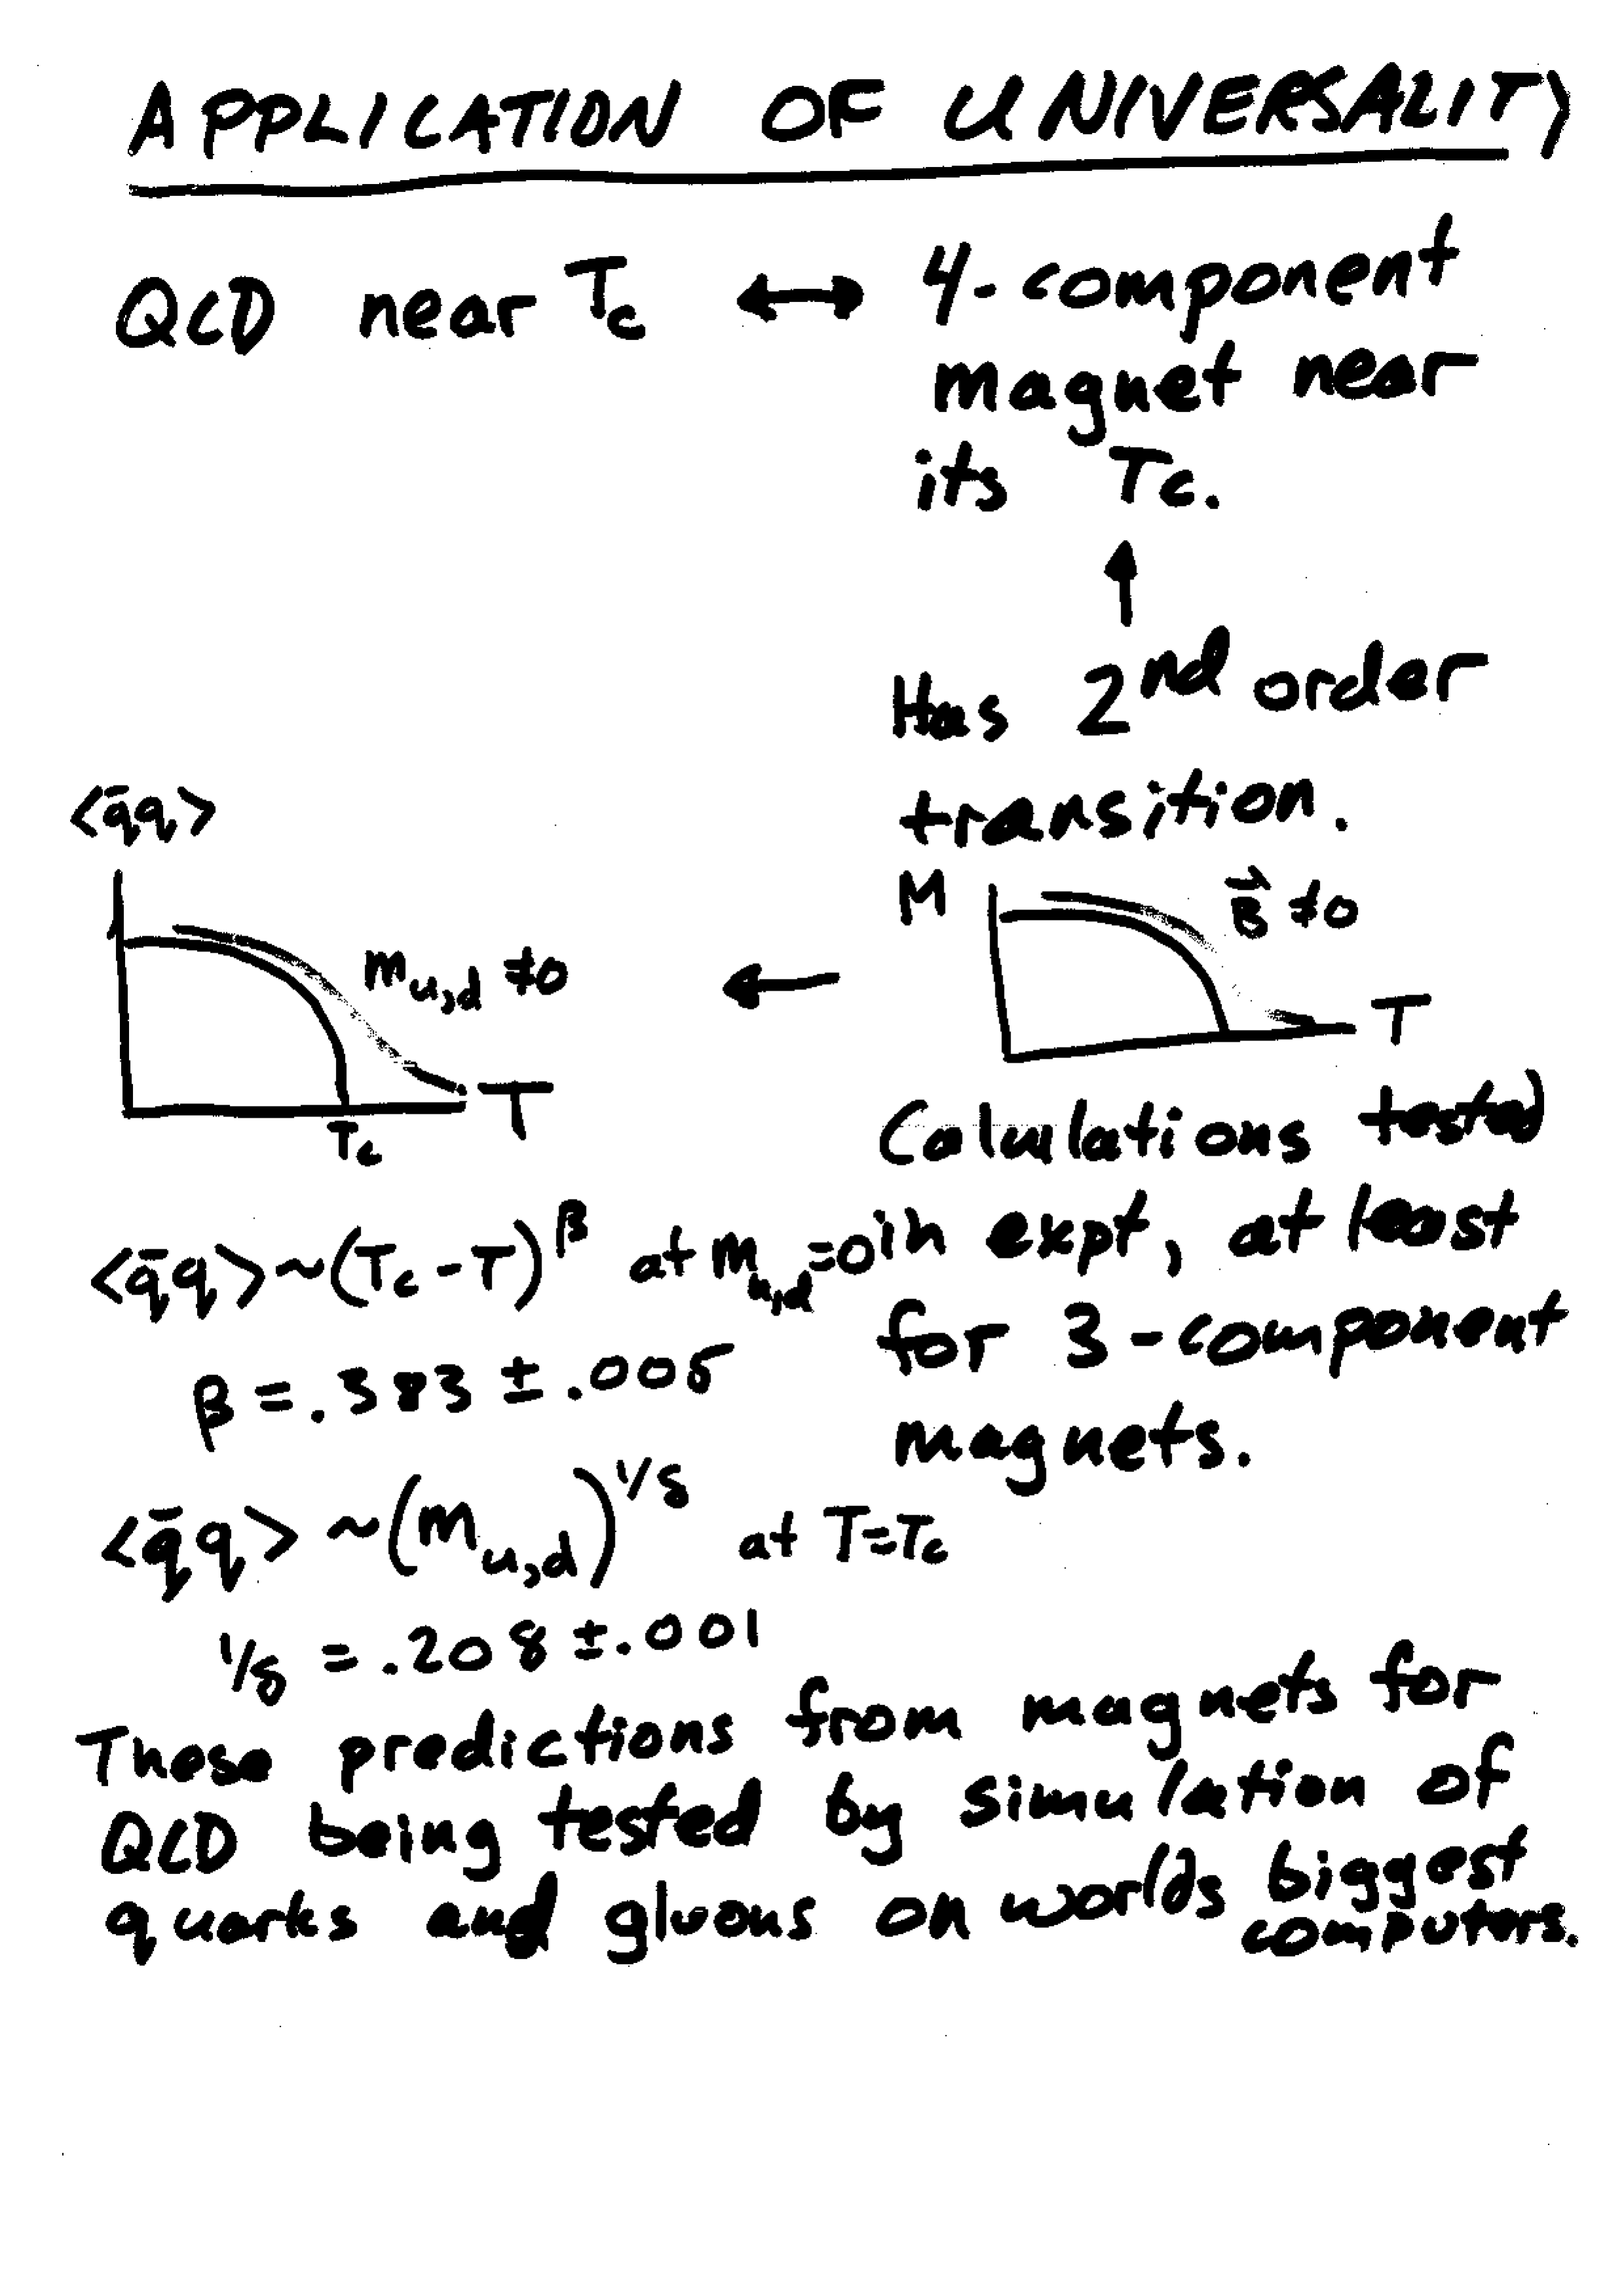 APPLICATION OF UNIVERSALITY
QCD near Tc ↔ 4-component
magnet near
its Tc.
↑
Has 2nd order
transition.
<q̄q>
m_{u,d} ≠0
T
Tc
←
M
B⃗ ≠0
T
Calculations tested
in expt, at least
for 3-component
magnets.
<q̄q> ~ (Tc-T)^β at m_{u,d}=0
β = .383 ± .005
<q̄q> ~ (m_{u,d})^{1/δ} at T=Tc
1/δ = .208 ± .001
These predictions from magnets for
QCD being tested by simulation of
quarks and gluons on worlds biggest
computers.